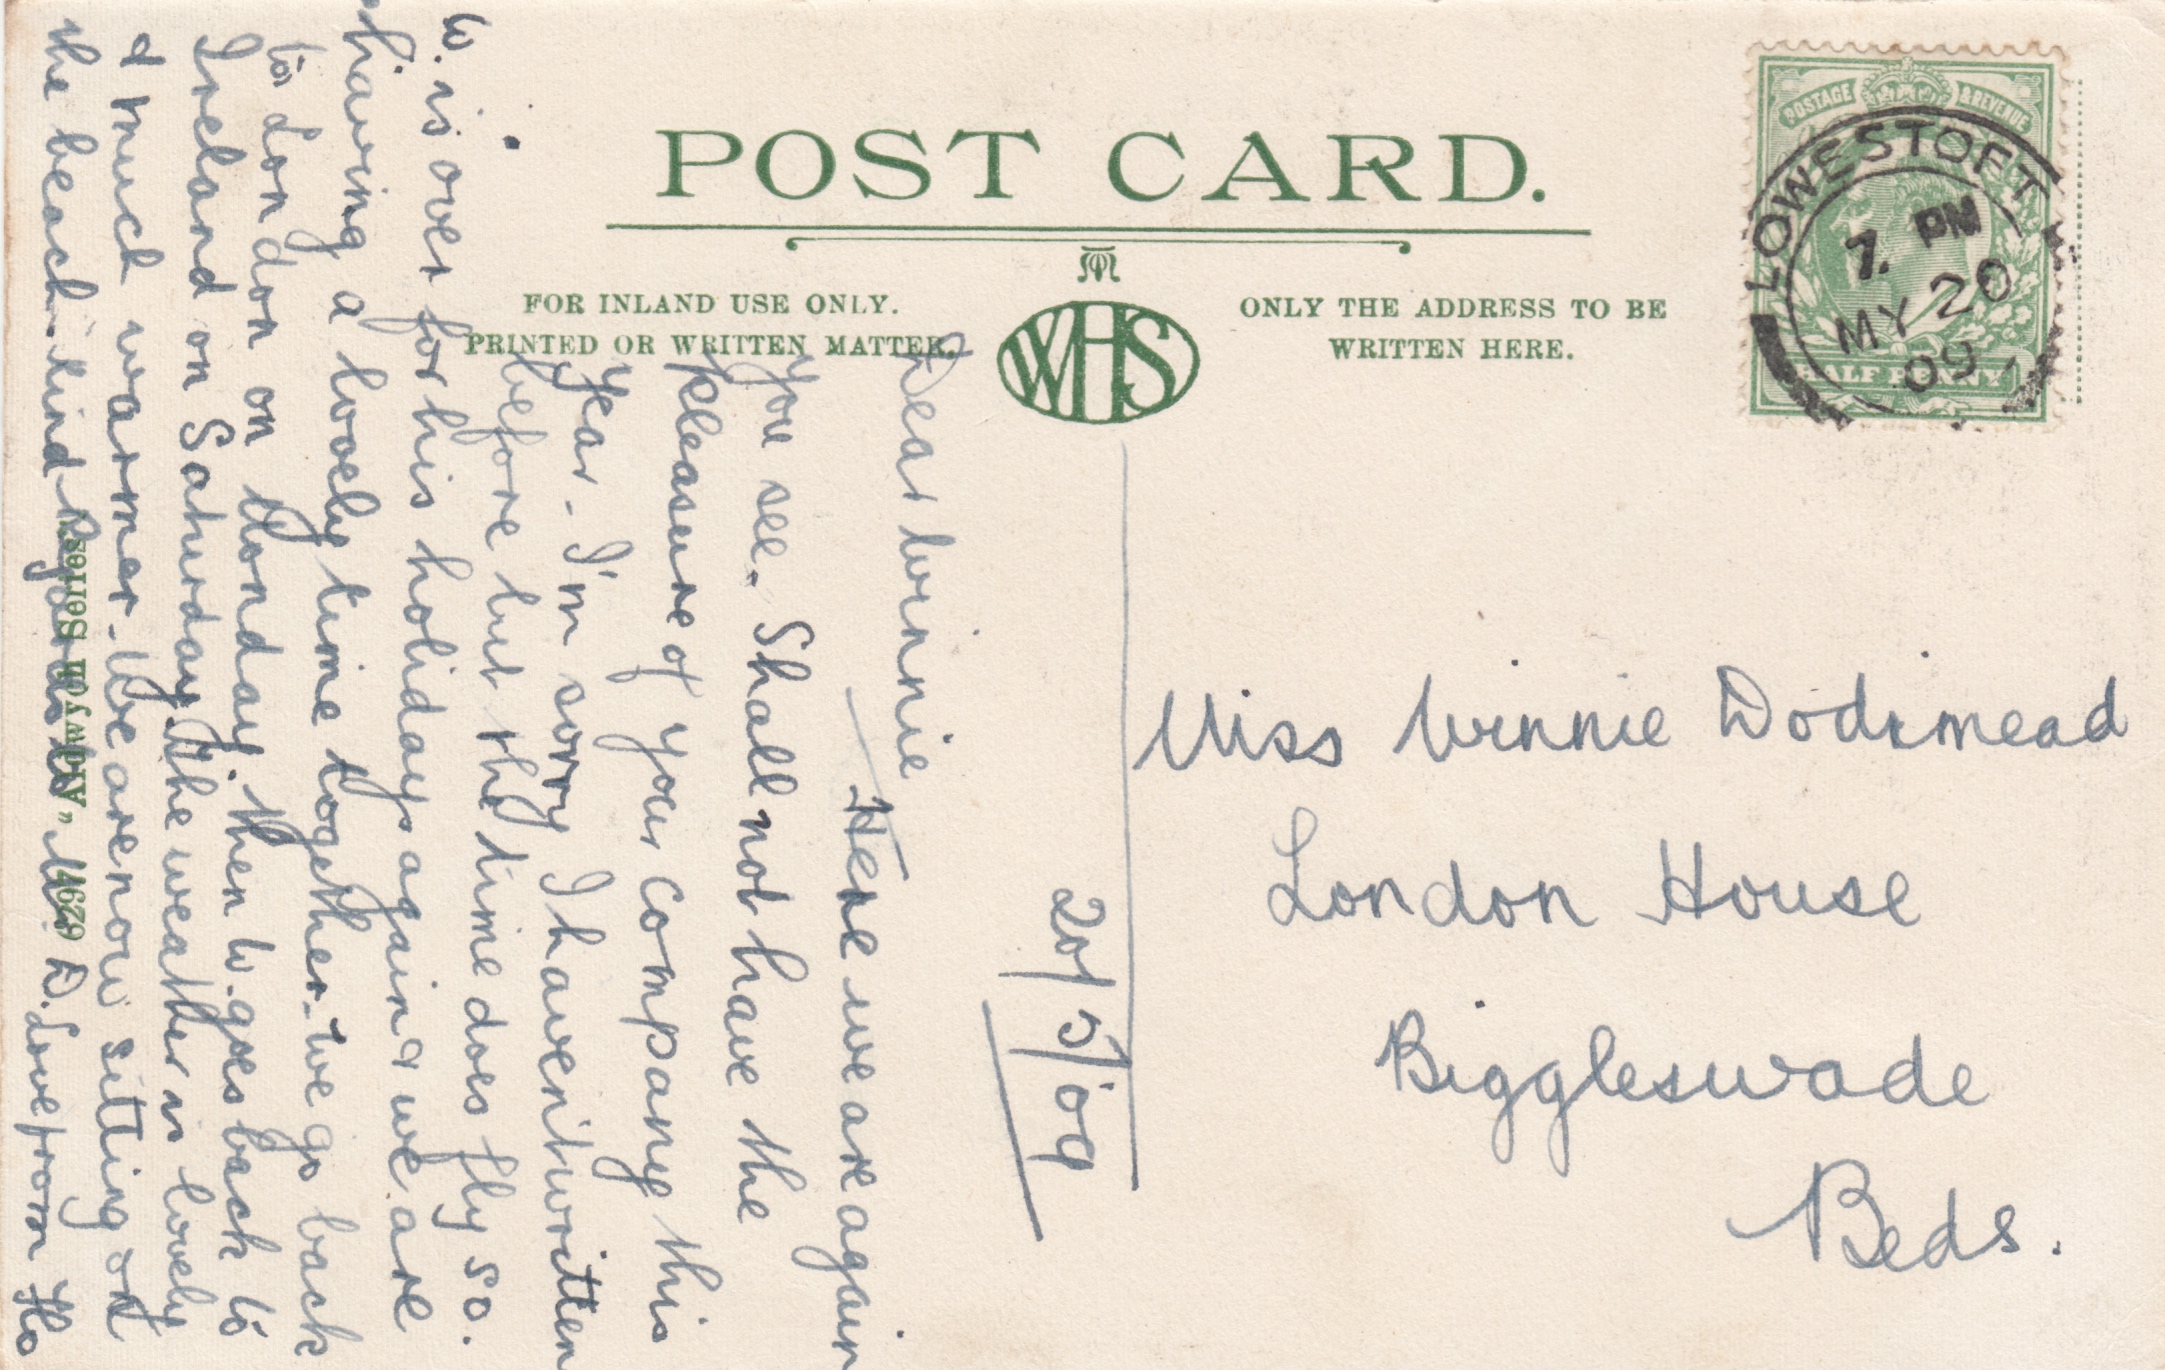 POST CARD.
FOR INLAND USE ONLY.
PRINTED OR WRITTEN MATTER.
WHS
ONLY THE ADDRESS TO BE
WRITTEN HERE.
POSTAGE & REVENUE
HALF PENNY
LOWESTOFT
7. PM
MY 20
09
20/5/09
Dear Winnie
Here we are again
you see. Shall not have the
pleasure of your company this
year. I'm sorry I haven't written
before but the time does fly so.
W. is over for his holidays again & we are
having a lovely time together. We go back
to London on Monday. then W. goes back to
Ireland on Saturday. The weather is lovely
& much warmer. We are now sitting on
the beach. kind Regards to Mrs D. Love from Flo
Miss Winnie Dodimead
London House
Biggleswade
Beds.
"Aldwych Series"